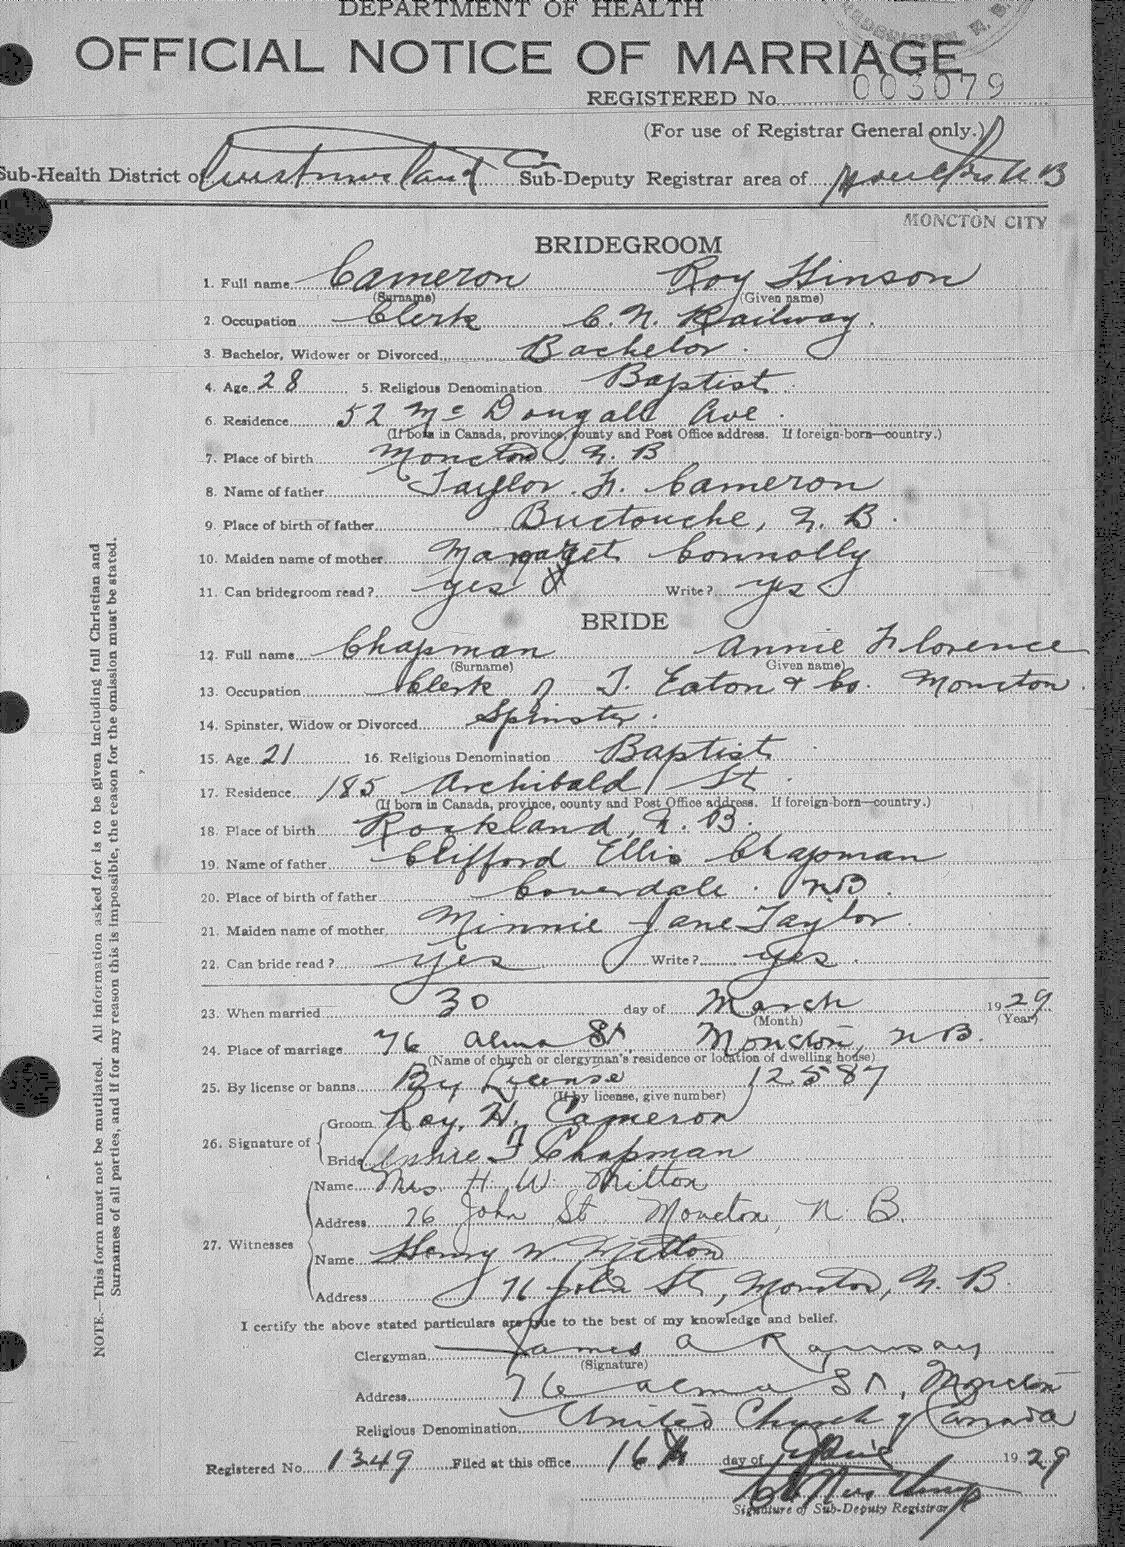 DEPARTMENT OF HEALTH
OFFICIAL NOTICE OF MARRIAGE
REGISTERED No. 003079
(For use of Registrar General only.)
Sub-Health District of Westmorland Co Sub-Deputy Registrar area of Moncton N B
MONCTON CITY
BRIDEGROOM
1. Full name Cameron Roy Hinson
(Surname) (Given name)
2. Occupation Clerk C. N. Railway.
3. Bachelor, Widower or Divorced Bachelor.
4. Age 28 5. Religious Denomination Baptist.
6. Residence 52 McDougall Ave.
(If born in Canada, province, county and Post Office address. If foreign-born—country.)
7. Place of birth Moncton, N. B
8. Name of father Taylor. H. Cameron
9. Place of birth of father Buctouche, N. B.
10. Maiden name of mother Margaret Connolly
11. Can bridegroom read? yes Write? yes
BRIDE
12. Full name Chapman Annie Florence
(Surname) Given name)
13. Occupation Clerk of T. Eaton & Co. Moncton.
14. Spinster, Widow or Divorced Spinster.
15. Age 21 16. Religious Denomination Baptist.
17. Residence 185 Archibald St.
(If born in Canada, province, county and Post Office address. If foreign-born—country.)
18. Place of birth Rockland, N. B.
19. Name of father Clifford Ellis Chapman
20. Place of birth of father Coverdale. N B.
21. Maiden name of mother Minnie Jane Taylor.
22. Can bride read? yes Write? yes.
23. When married 30 day of March 1929
(Month) (Year)
24. Place of marriage 76 Alma St, Moncton, N B.
(Name of church or clergyman's residence or location of dwelling house)
25. By license or banns By License 12587
(If by license, give number)
26. Signature of Groom Roy. H. Cameron
Bride Annie F Chapman
27. Witnesses Name Mrs. H. W. Mitton
Address 76 John St. Moncton, N. B.
Name Henry W. Mitton
Address 76 John St., Moncton, N. B.
I certify the above stated particulars are true to the best of my knowledge and belief.
Clergyman James A Ramsay
(Signature)
Address 76 Alma St, Moncton
Religious Denomination United Church of Canada
Registered No. 1349 Filed at this office 16th day of April 1929
Signature of Sub-Deputy Registrar
NOTE.—This form must not be mutilated. All information asked for is to be given including full Christian and
Surnames of all parties, and if for any reason this is impossible, the reason for the omission must be stated.